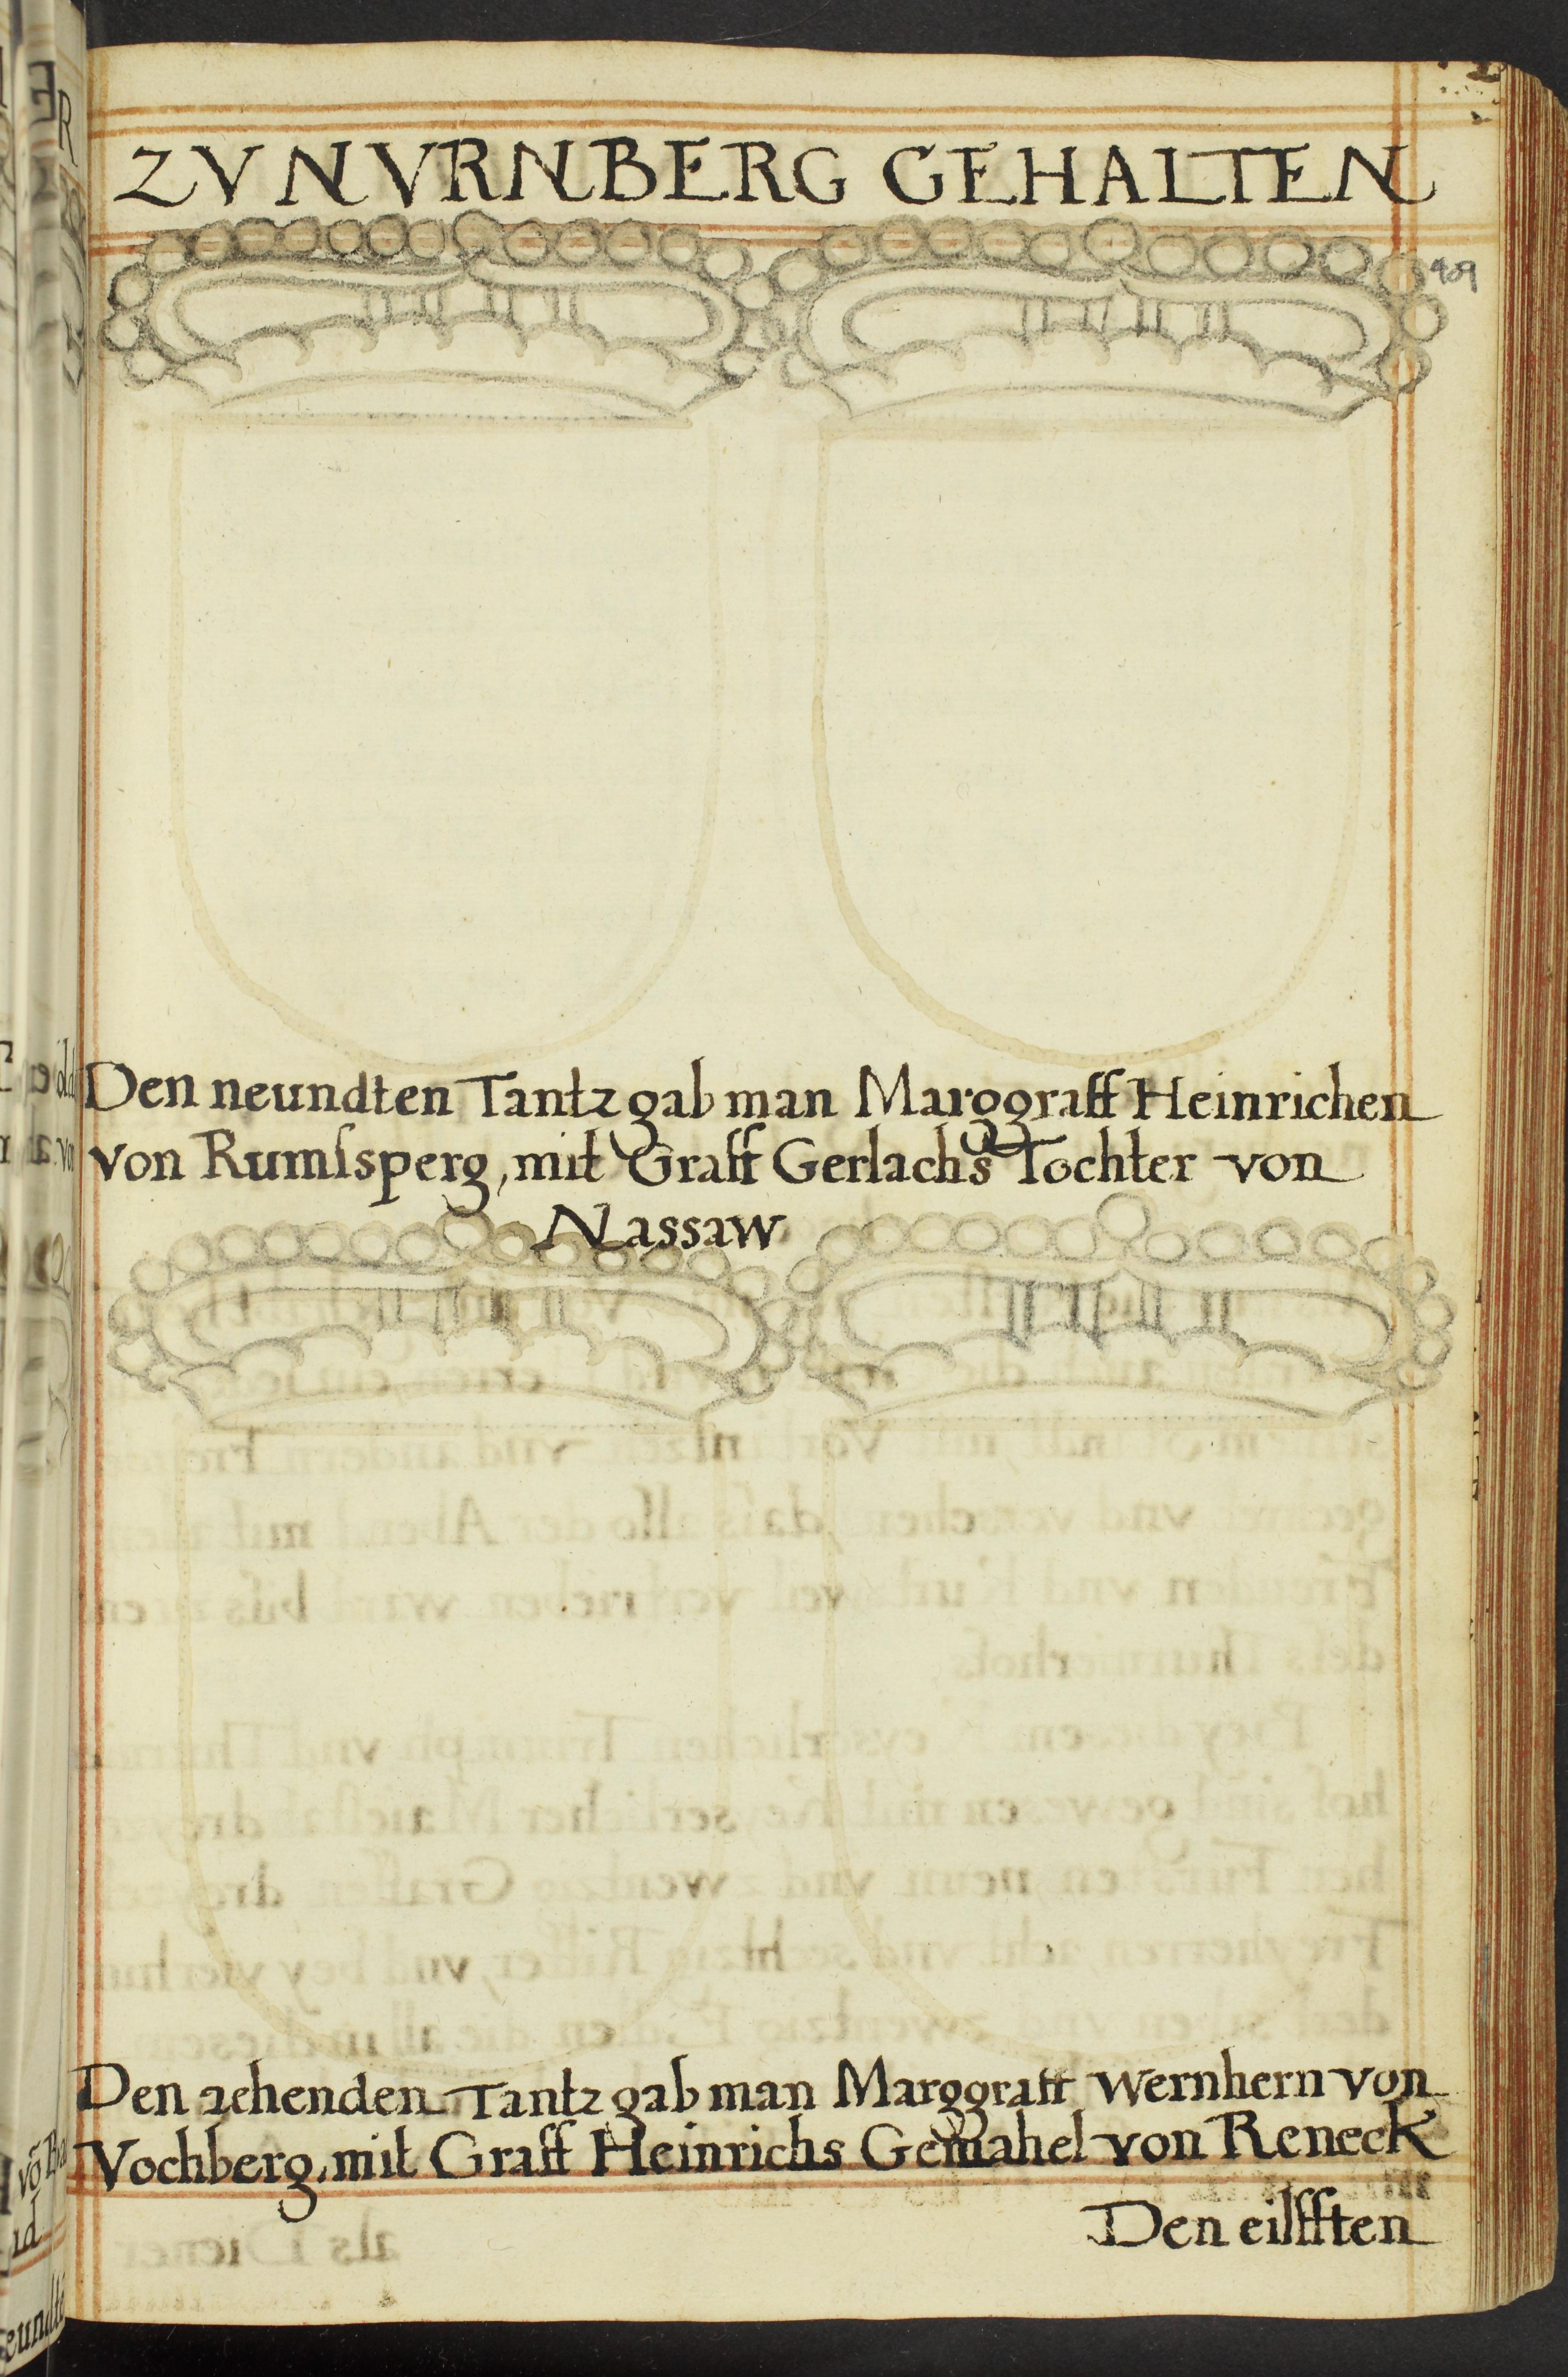 ZV NVRNBERG GEHALTEN
409
Den neundten Tantz gab man Marggraff Heinrichen
von Rumſsperg, mit Graff Gerlachs Tochter von
Nassaw
Den zehenden Tantz gab man Marggraff Wernhern von
Vochberg, mit Graff Heinrichs Gemahel von Reneck
Den eilfften